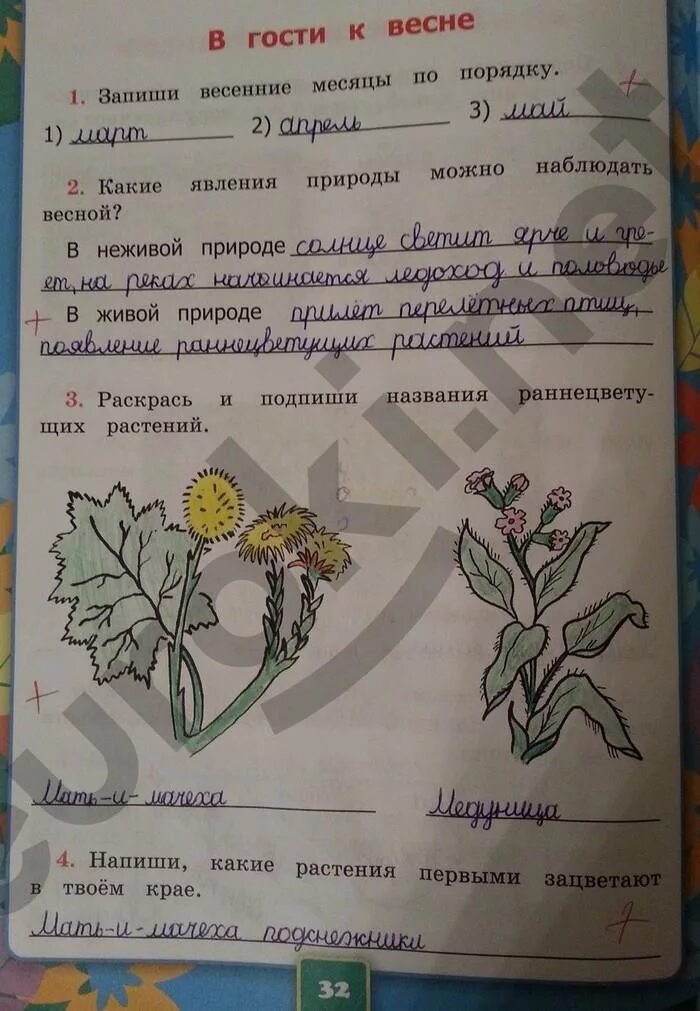 В гости к весне
1. Запиши весенние месяцы по порядку.
1) март 2) апрель 3) май
2. Какие явления природы можно наблюдать
весной?
В неживой природе солнце светит ярче и гре-
ет, на реках начинается ледоход и половодье
В живой природе прилёт перелётных птиц,
появление раннецветущих растений
3. Раскрась и подпиши названия раннецвету-
щих растений.
Мать-и-мачеха Медуница
4. Напиши, какие растения первыми зацветают
в твоём крае.
Мать-и-мачеха подснежники
32
euroki.net